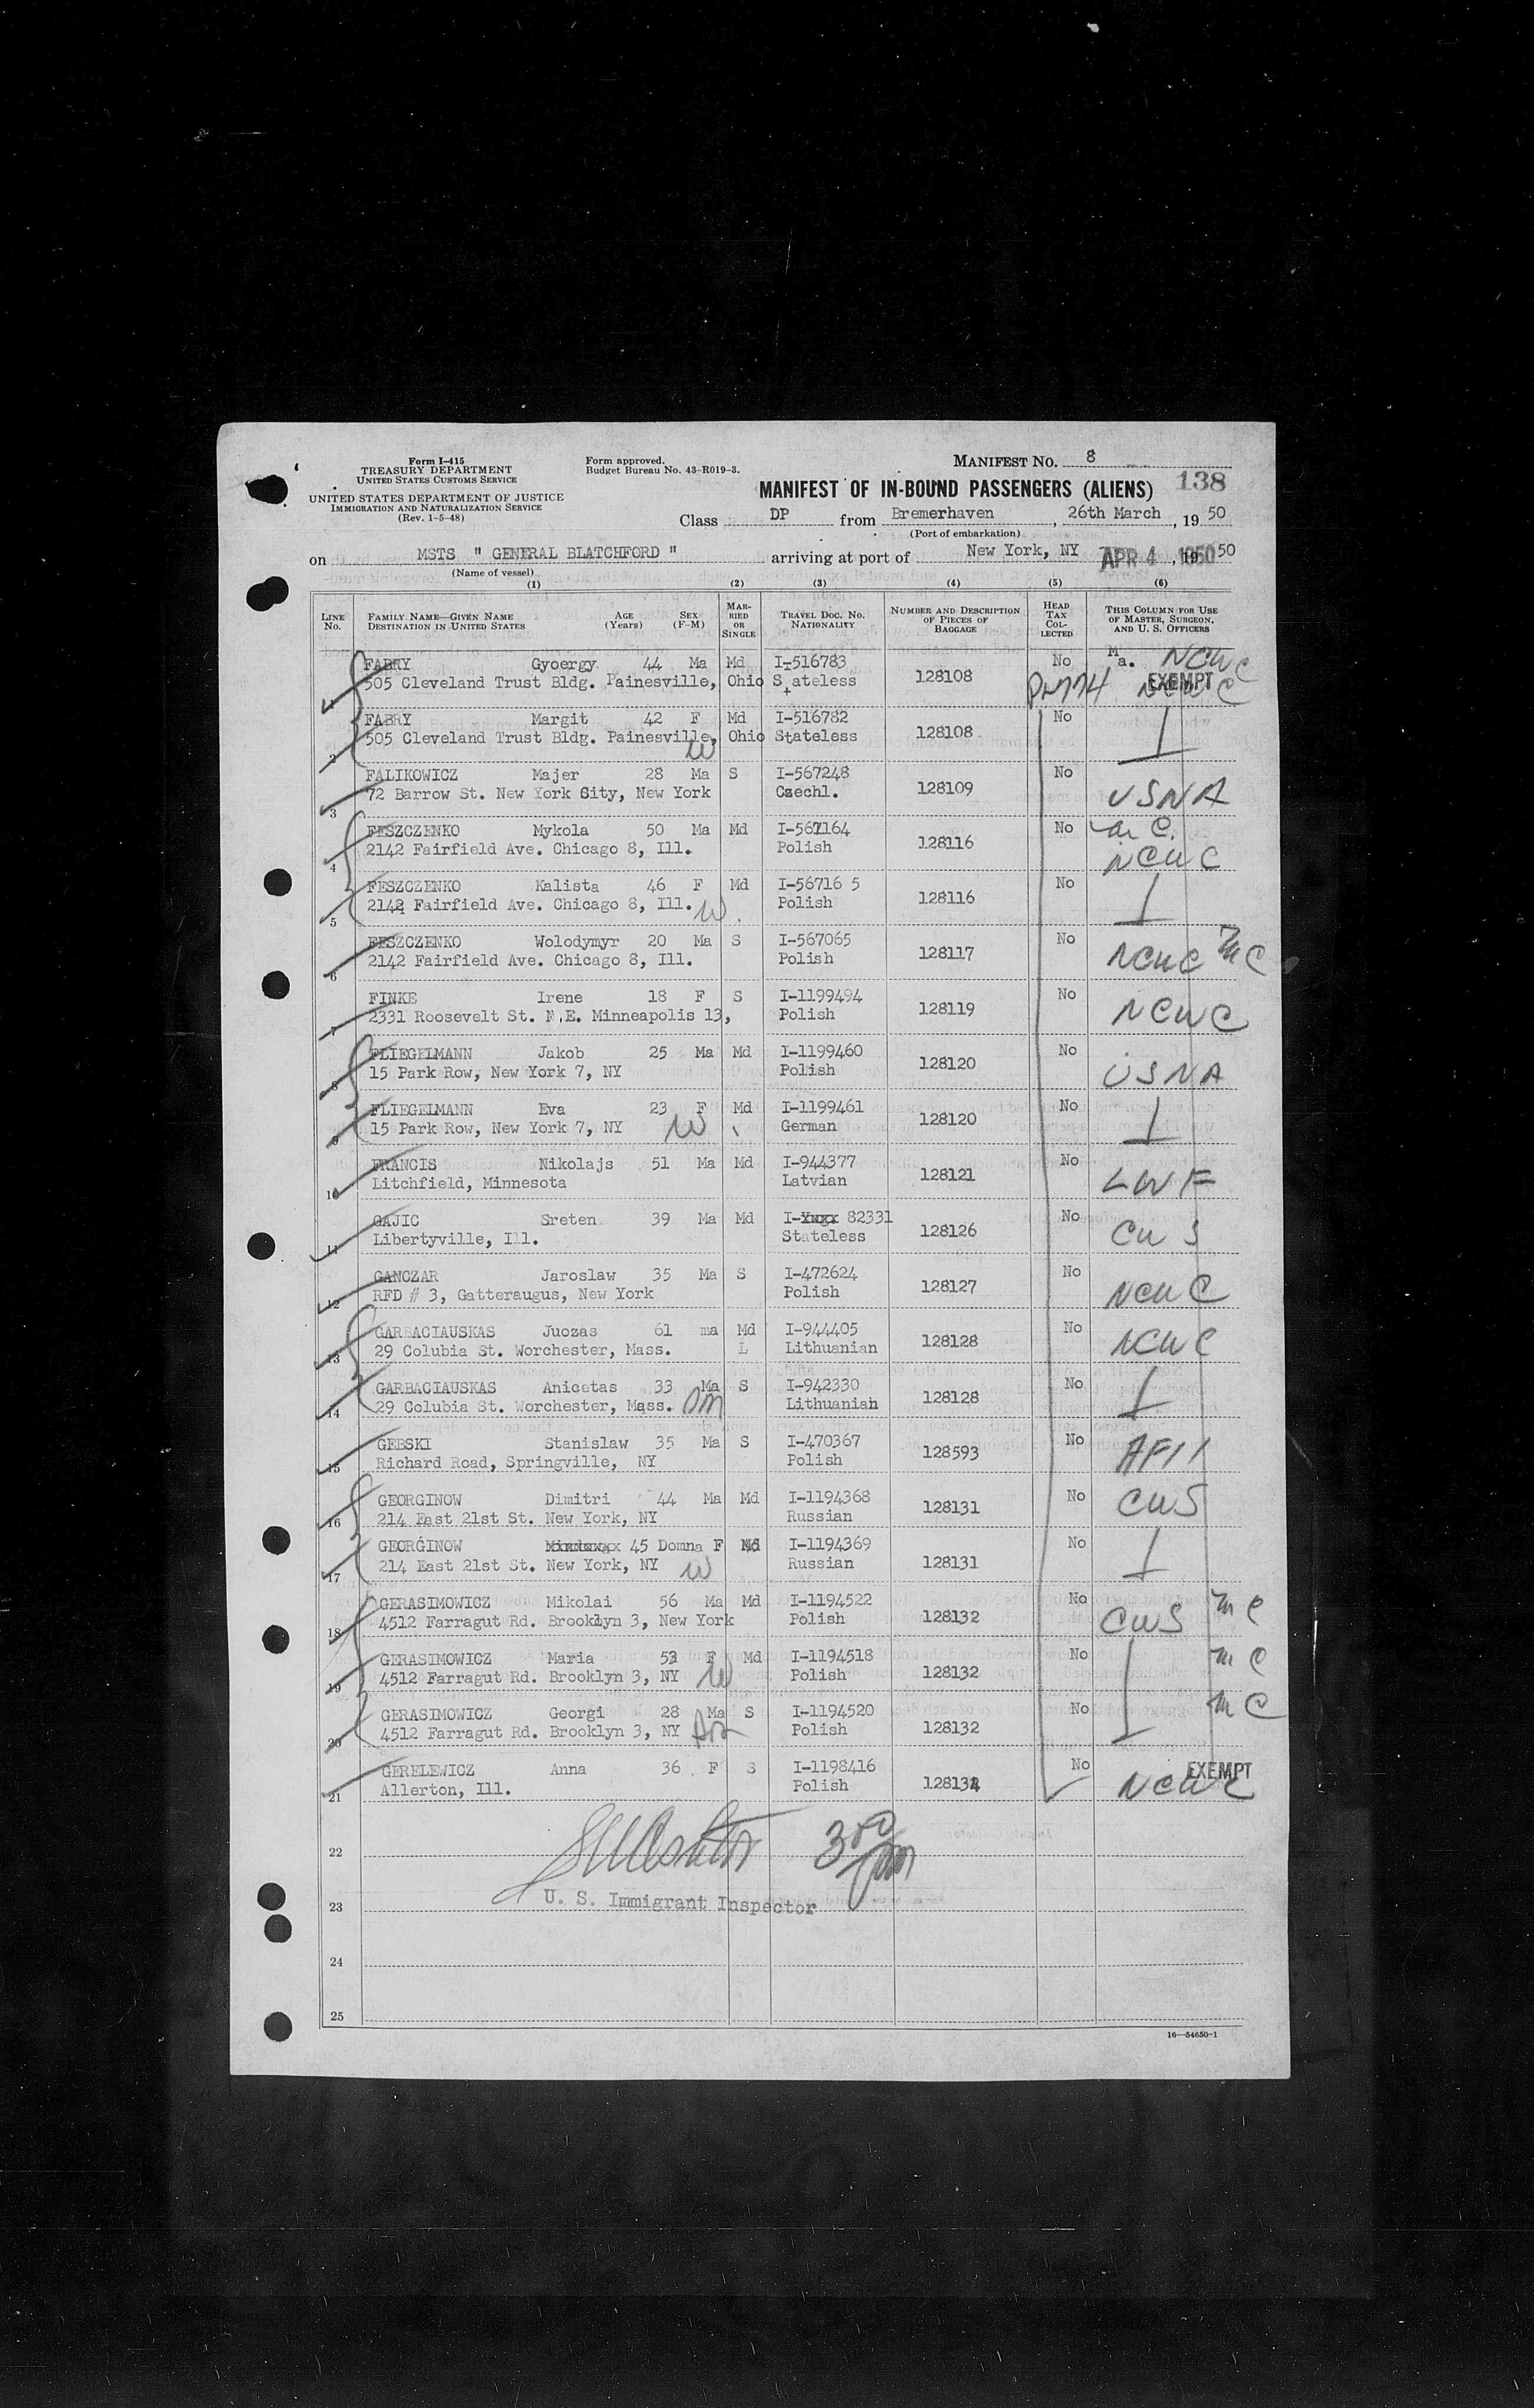 Form I-415
TREASURY DEPARTMENT
UNITED STATES CUSTOMS SERVICE
UNITED STATES DEPARTMENT OF JUSTICE
IMMIGRATION AND NATURALIZATION SERVICE
(Rev. 1-5-48)
Form approved.
Budget Bureau No. 43-R019-3.
MANIFEST NO. 8
MANIFEST OF IN-BOUND PASSENGERS (ALIENS) 138
Class DP from Bremerhaven, 26th March, 19 50
(Port of embarkation)
on MSTS " GENERAL BLATCHFORD " arriving at port of New York, NY APR 4 1950, 19 50
(Name of vessel)
(1) (2) (3) (4) (5) (6)
LINE No. FAMILY NAME—GIVEN NAME DESTINATION IN UNITED STATES AGE (Years) SEX (F-M) MARRIED OR SINGLE TRAVEL DOC. NO. NATIONALITY NUMBER AND DESCRIPTION OF PIECES OF BAGGAGE HEAD TAX COLLECTED THIS COLUMN FOR USE OF MASTER, SURGEON, AND U. S. OFFICERS
1 FABRY Gyoergy 44 Ma Md I-516783 128108 No Ma. NCWC
505 Cleveland Trust Bldg. Painesville, Ohio Stateless EXEMPT NCWC
2 FABRY Margit 42 F Md I-516782 128108 No
505 Cleveland Trust Bldg. Painesville, Ohio Stateless
W
3 FALIKOWICZ Majer 28 Ma S I-567248 128109 No USNA
72 Barrow St. New York City, New York Czechl.
4 FESZCZENKO Mykola 50 Ma Md I-567164 128116 No
2142 Fairfield Ave. Chicago 8, Ill. Polish NCWC
5 FESZCZENKO Kalista 46 F Md I-56716 5 128116 No
2142 Fairfield Ave. Chicago 8, Ill. W. Polish
6 FESZCZENKO Wolodymyr 20 Ma S I-567065 128117 No NCWC MC
2142 Fairfield Ave. Chicago 8, Ill. Polish
7 FINKE Irene 18 F S I-1199494 128119 No NCWC
2331 Roosevelt St. N.E. Minneapolis 13, Polish
8 FLIEGELMANN Jakob 25 Ma Md I-1199460 128120 No USNA
15 Park Row, New York 7, NY Polish
9 FLIEGELMANN Eva 23 F Md I-1199461 128120 No
15 Park Row, New York 7, NY W German
10 FRANCIS Nikolajs 51 Ma Md I-944377 128121 No LWF
Litchfield, Minnesota Latvian
11 GAJIC Sreten 39 Ma Md I-xxxx 82331 128126 No CWS
Libertyville, Ill. Stateless
12 GANCZAR Jaroslaw 35 Ma S I-472624 128127 No NCWC
RFD # 3, Gatteraugus, New York Polish
13 GARBACIAUSKAS Juozas 61 ma Md I-944405 128128 No NCWC
29 Colubia St. Worchester, Mass. L Lithuanian
14 GARBACIAUSKAS Anicetas 33 Ma S I-942330 128128 No
29 Colubia St. Worchester, Mass. Lithuanian
15 GEBSKI Stanislaw 35 Ma S I-470367 128593 No
Richard Road, Springville, NY Polish
16 GEORGINOW Dimitri 44 Ma Md I-1194368 128131 No CWS
214 East 21st St. New York, NY Russian
17 GEORGINOW 45 Domna F Md I-1194369 128131 No
214 East 21st St. New York, NY W Russian
18 GERASIMOWICZ Mikolai 56 Ma Md I-1194522 128132 No CWS MC
4512 Farragut Rd. Brooklyn 3, New York Polish
19 GERASIMOWICZ Maria 53 F Md I-1194518 128132 No MC
4512 Farragut Rd. Brooklyn 3, NY W Polish
20 GERASIMOWICZ Georgi 28 Ma S I-1194520 128132 No MC
4512 Farragut Rd. Brooklyn 3, NY Polish
21 GERELEWICZ Anna 36 F S I-1198416 128134 No EXEMPT
Allerton, Ill. Polish NCWC
22 3 00 pm
23 U. S. Immigrant Inspector
24
25
16—54650-1